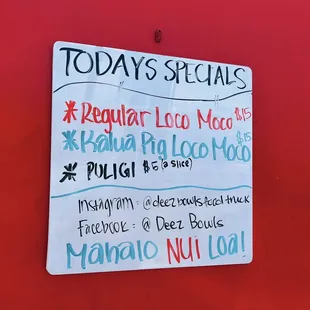 TODAYS SPECIALS
* Regular Loco Moco $15
* Kalua Pig Loco Moco $15
* PULIGI $5 (a slice)
Instagram : @deezbowlsfoodtruck
Facebook : @ Deez Bowls
Mahalo NUI Loa!